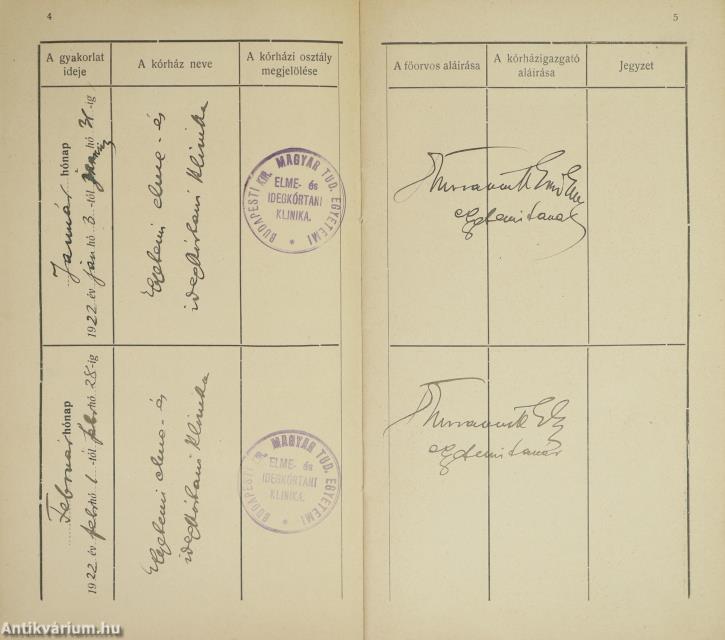 4
A gyakorlat
ideje
A kórház neve
A kórházi osztály
megjelölése
Január hónap
1922 év jan hó 3.-tól hó 31-ig
Egyetemi elme- és
idegkórtani klinika
BUDAPESTI KIR. MAGYAR TUD. EGYETEMI
ELME- és
IDEGKÓRTANI
KLINIKA.
*
Február hónap
1922 év febr hó 1.-től febr hó 28-ig
Egyetemi elme- és
idegkórtani klinika
BUDAPESTI KIR. MAGYAR TUD. EGYETEMI
ELME- és
IDEGKÓRTANI
KLINIKA.
*
5
A főorvos aláírása
A kórházigazgató
aláírása
Jegyzet
egyetemi tanár
egyetemi tanár
Antikvárium.hu